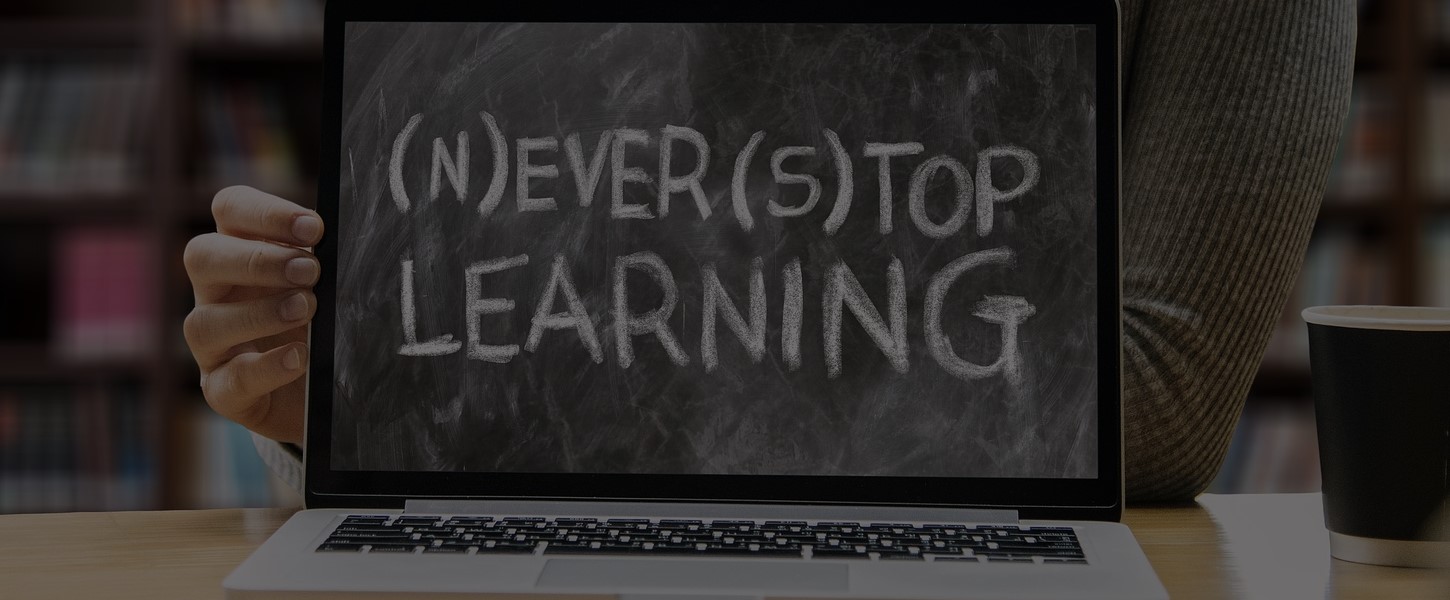 (N)EVER (S)TOP
LEARNING